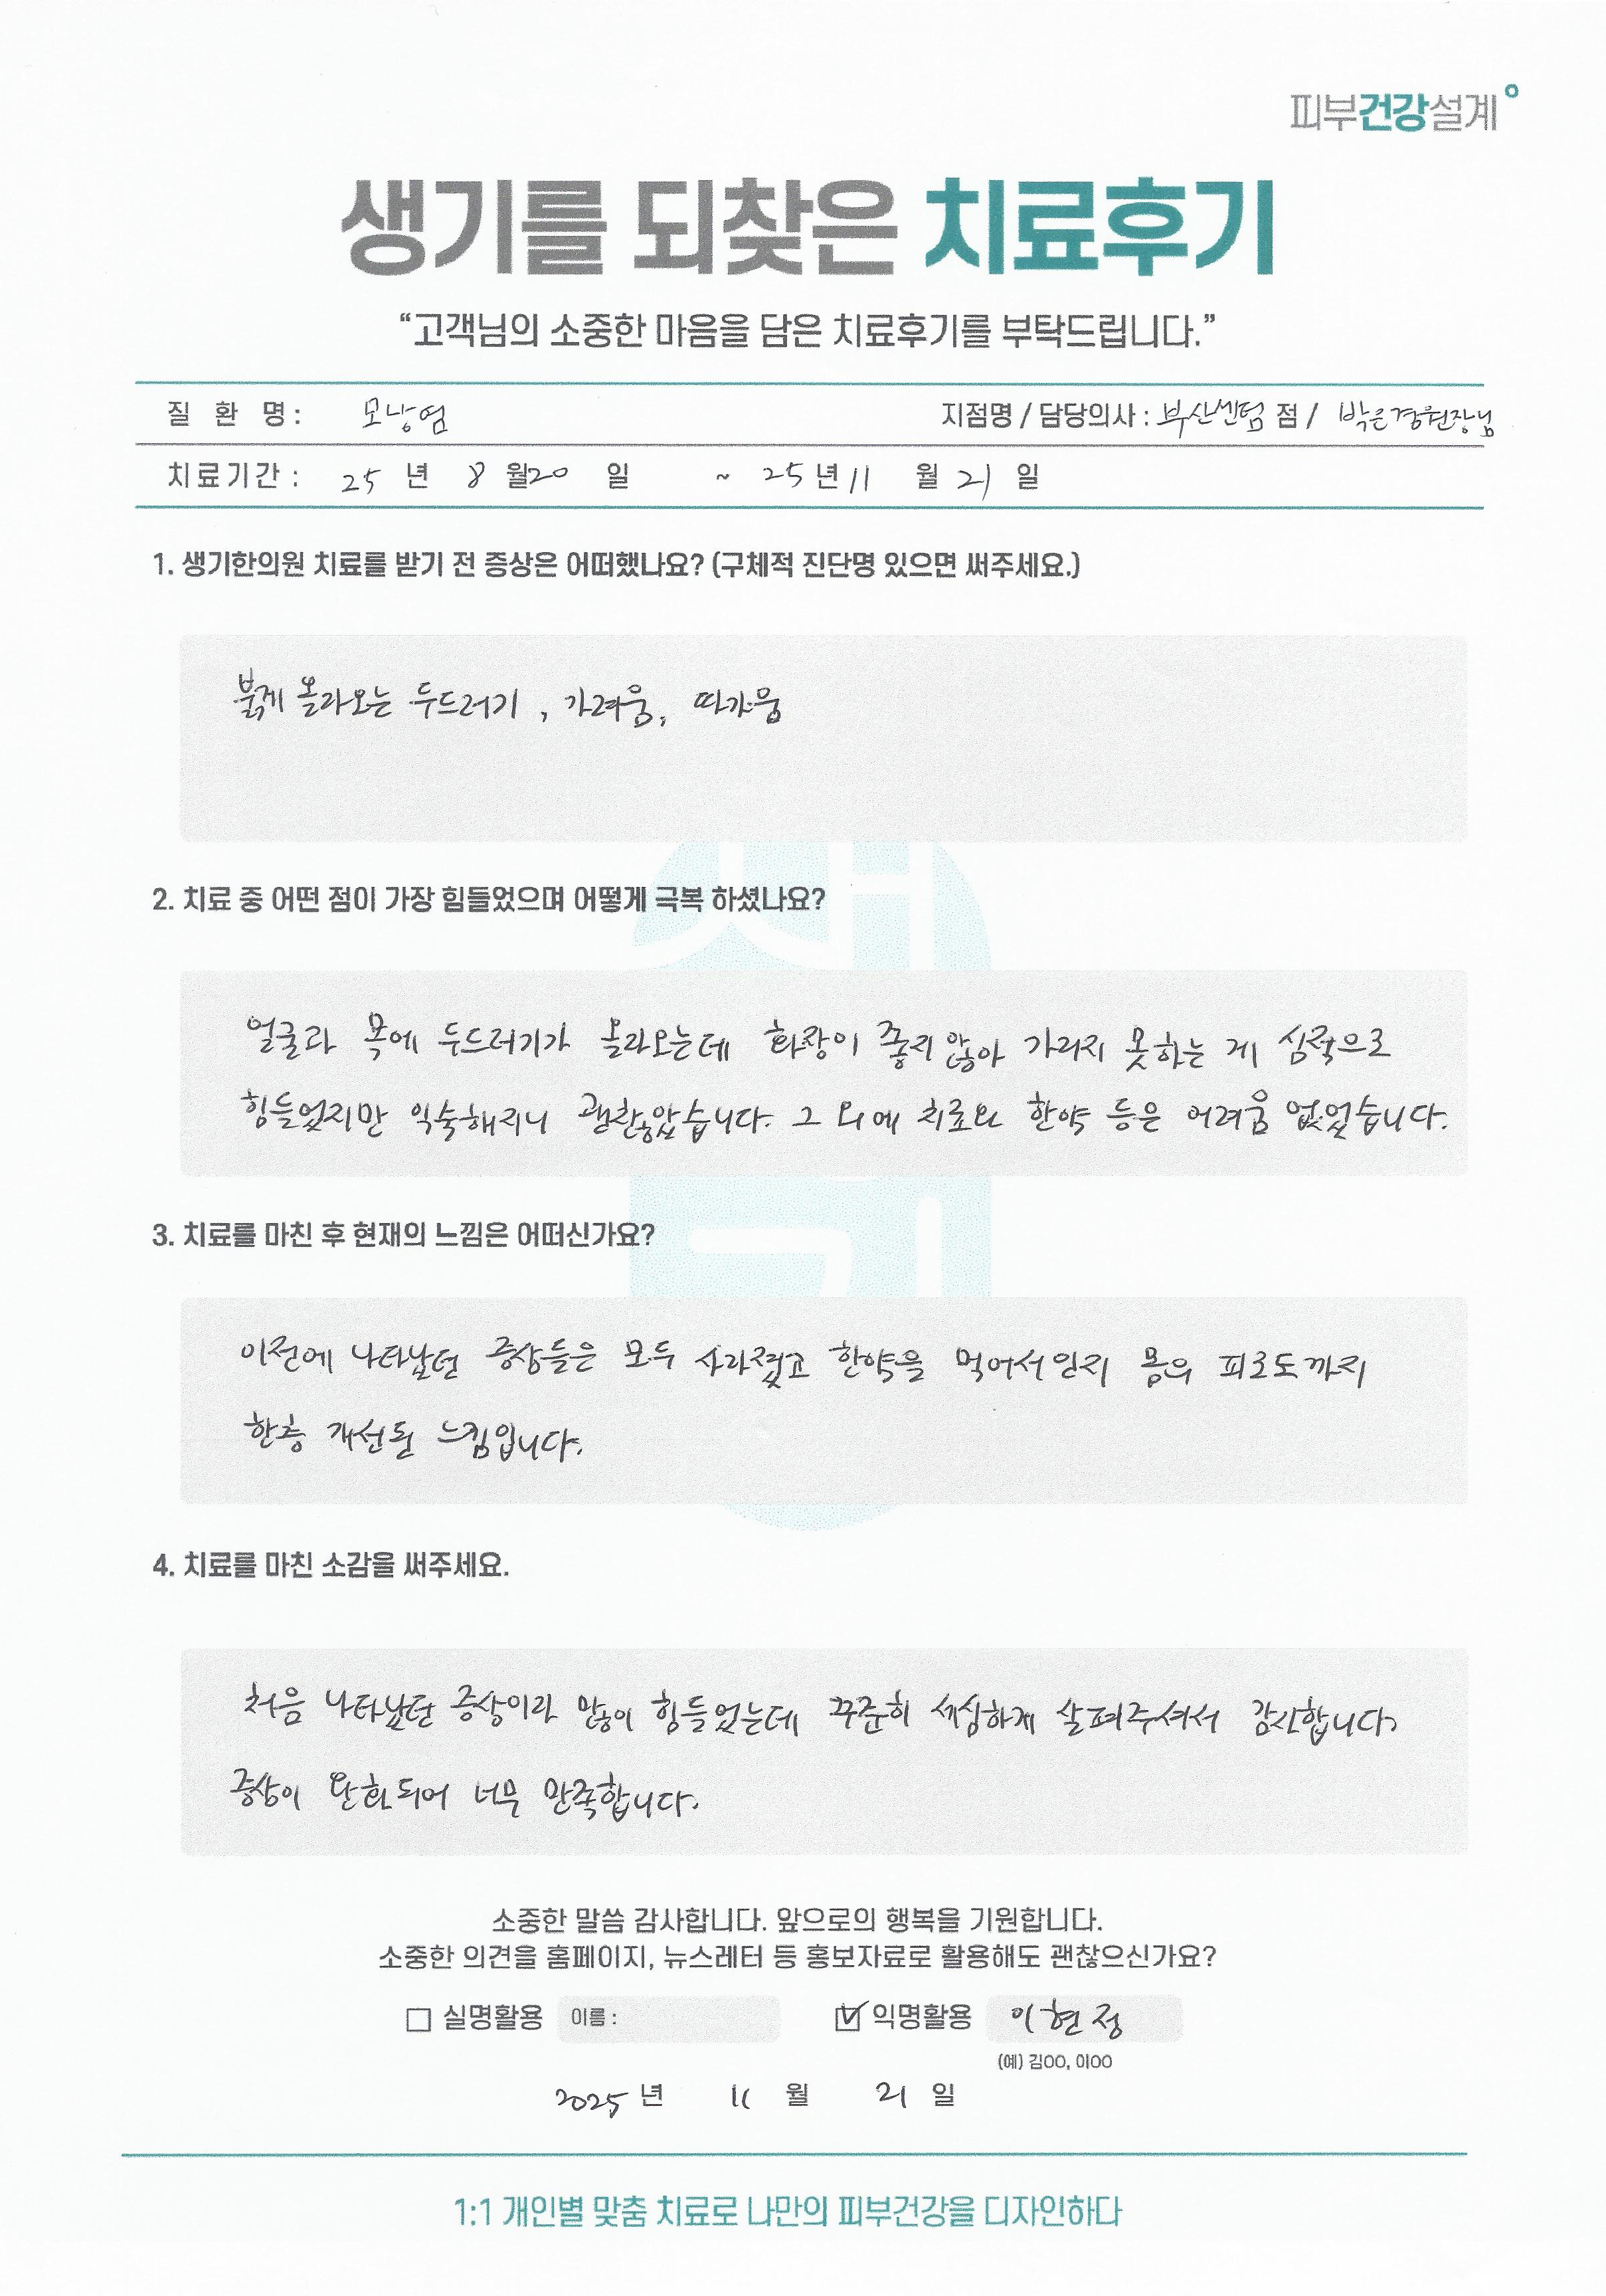 피부건강설계
생기를 되찾은 치료후기
“고객님의 소중한 마음을 담은 치료후기를 부탁드립니다.”
질 환 명 : 모낭염 지점명 / 담당의사 : 부산센텀 점 / 박은경원장님
치료기간 : 25 년 8 월 20 일 ~ 25 년 11 월 21 일
1. 생기한의원 치료를 받기 전 증상은 어떠했나요? (구체적 진단명 있으면 써주세요.)
붉게 올라오는 두드러기, 가려움, 따가움
2. 치료 중 어떤 점이 가장 힘들었으며 어떻게 극복 하셨나요?
얼굴과 목에 두드러기가 올라오는데 화장이 좋지 않아 가리지 못하는 게 심적으로
힘들었지만 익숙해지니 괜찮았습니다. 그 외에 치료와 한약 등은 어려움 없었습니다.
3. 치료를 마친 후 현재의 느낌은 어떠신가요?
이전에 나타났던 증상들은 모두 사라졌고 한약을 먹어서인지 몸의 피로도까지
한층 개선된 느낌입니다.
4. 치료를 마친 소감을 써주세요.
처음 나타났던 증상이라 많이 힘들었는데 꾸준히 세심하게 살펴주셔서 감사합니다.
증상이 완화되어 너무 만족합니다.
소중한 말씀 감사합니다. 앞으로의 행복을 기원합니다.
소중한 의견을 홈페이지, 뉴스레터 등 홍보자료로 활용해도 괜찮으신가요?
실명활용 이름 : 익명활용 이현정
(예) 김OO, 이OO
2025 년 11 월 21 일
1:1 개인별 맞춤 치료로 나만의 피부건강을 디자인하다
생기